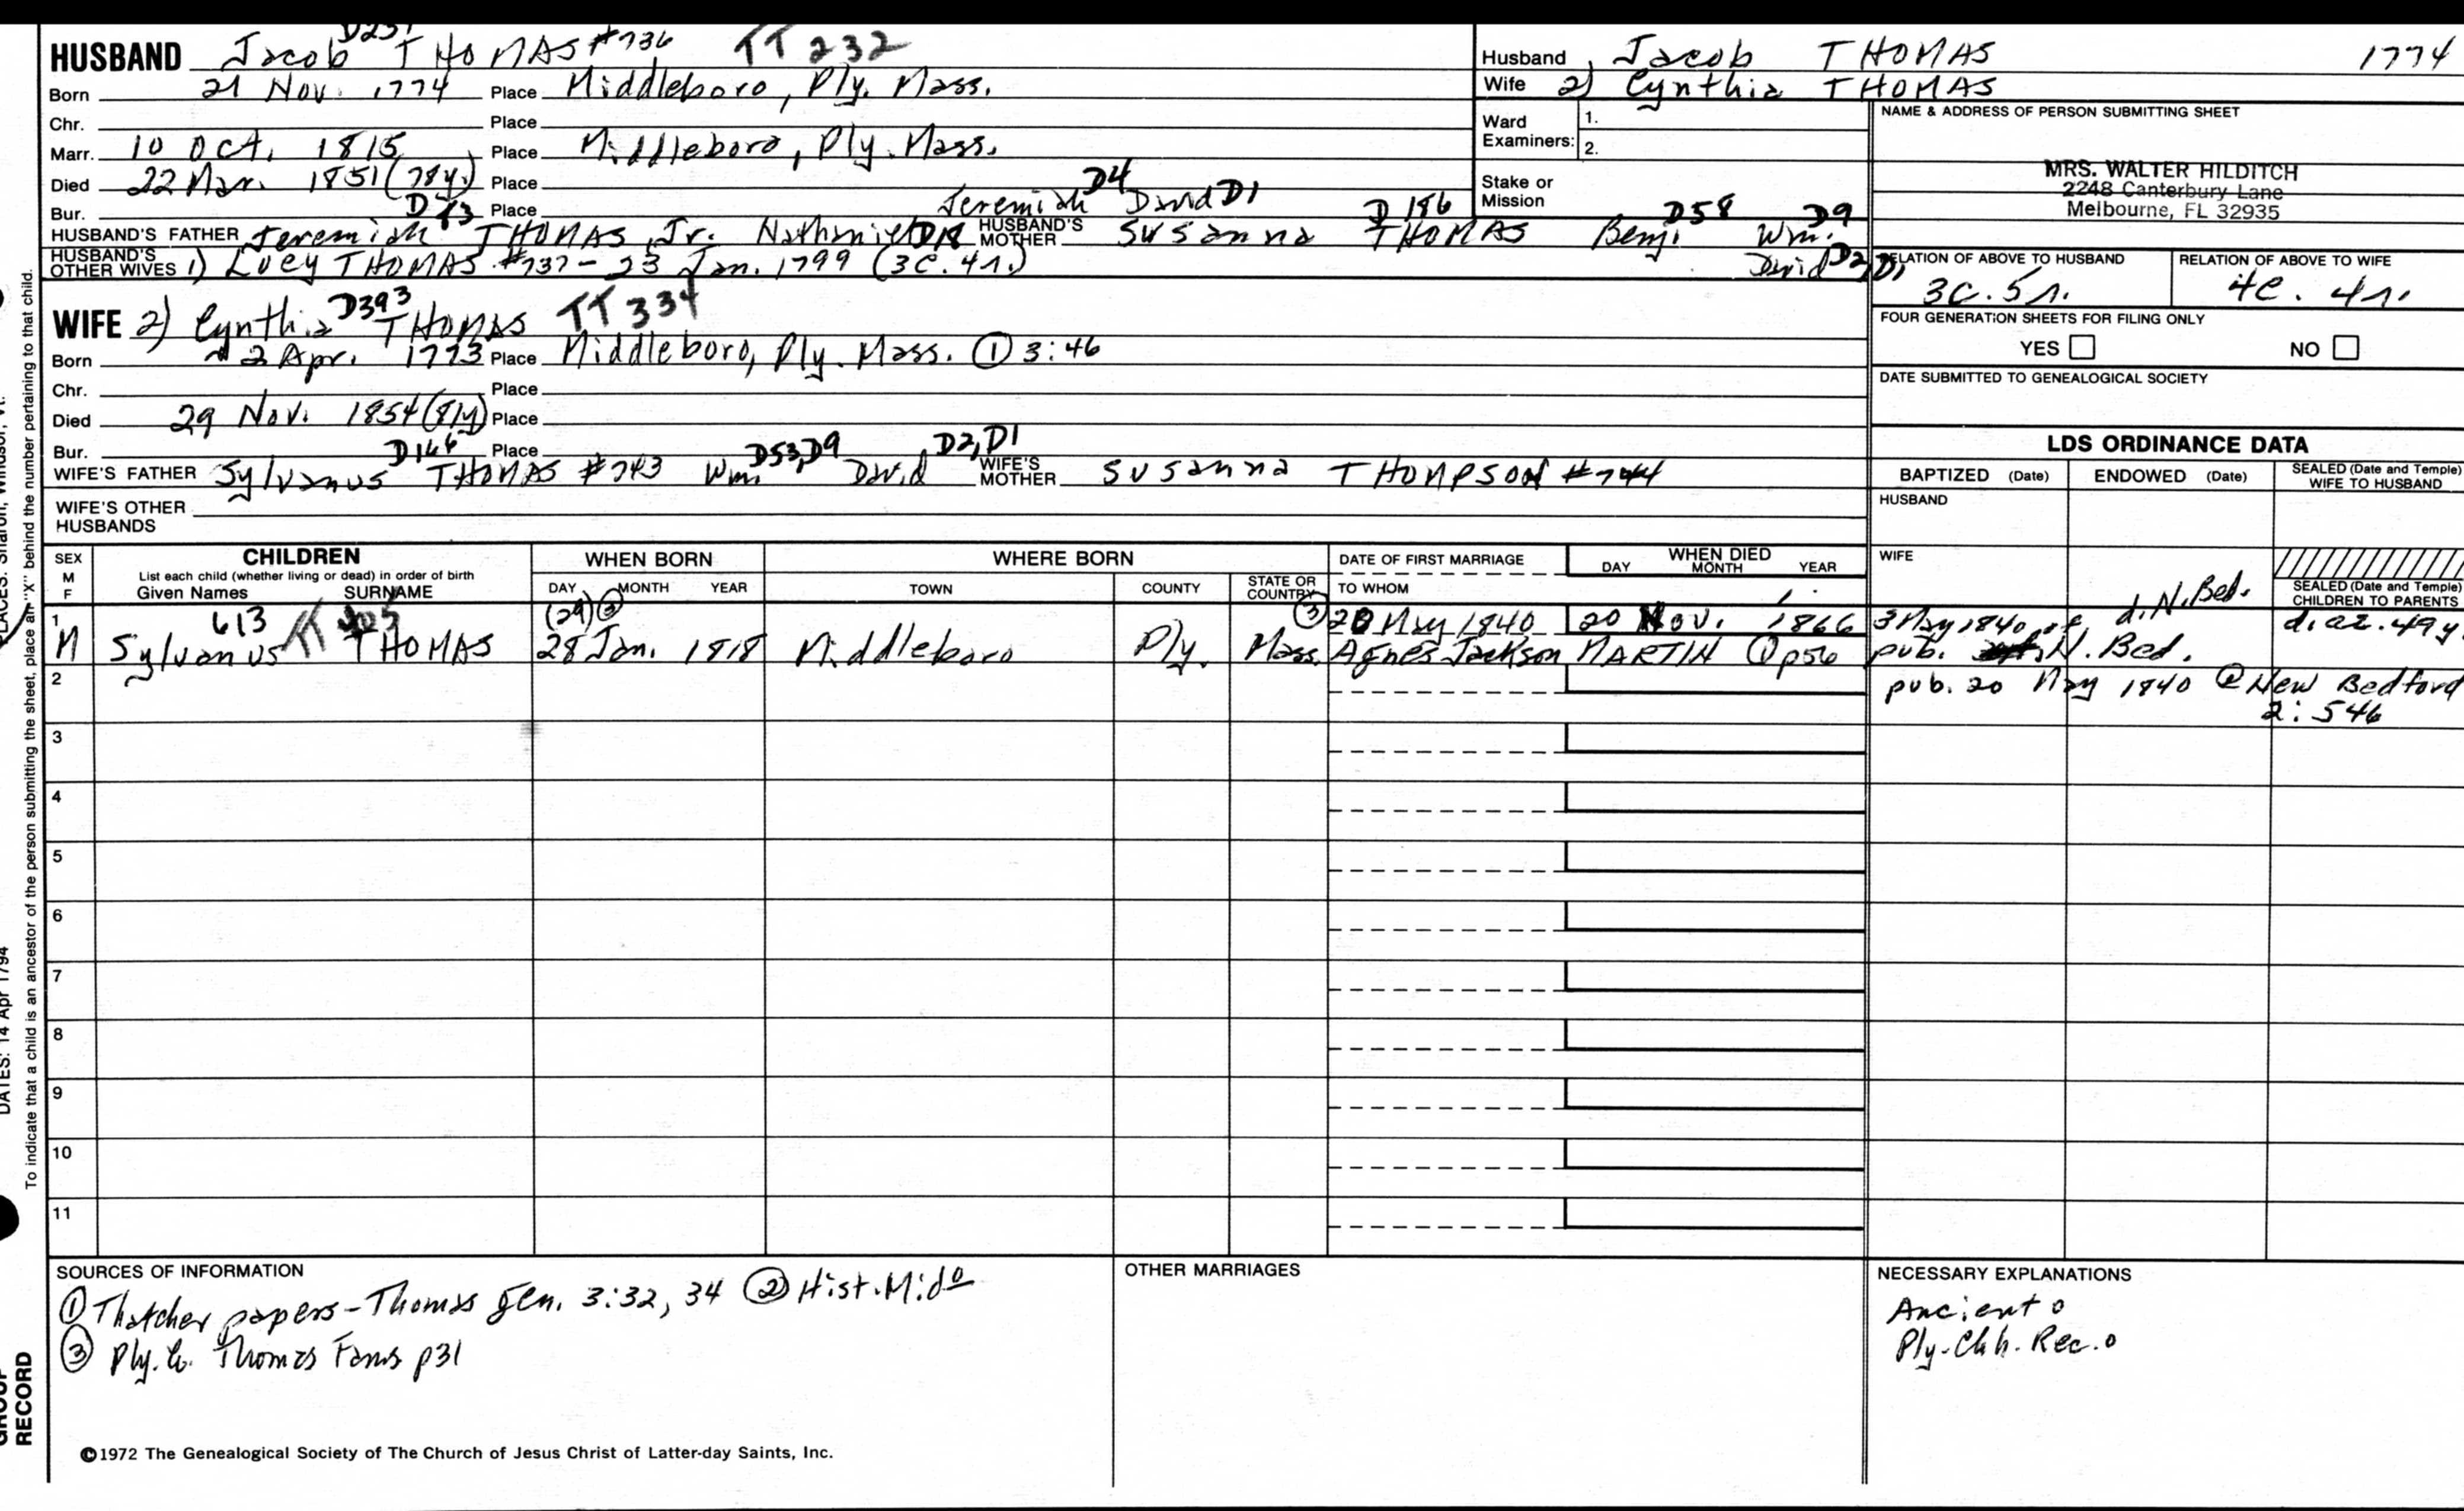 D231
HUSBAND Jacob THOMAS #736 TT 232
Born 21 Nov. 1774 Place Middleboro, Ply. Mass.
Chr. Place
Marr. 10 Oct. 1815 Place Middleboro, Ply. Mass.
Died 22 Mar. 1851 (78y.) Place
Bur. Place
D73 Jeremiah D4 David D1 D186 D58 D9
HUSBAND'S FATHER Jeremiah THOMAS, Jr. Nathaniel D18 HUSBAND'S MOTHER Susanna THOMAS Benj. Wm.
HUSBAND'S OTHER WIVES 1) Lucy THOMAS #737 - 23 Jan. 1799 (3C. 4r.) David D2, D1
D393
WIFE 2) Cynthia THOMAS TT 334
Born 2 Apr. 1773 Place Middleboro, Ply. Mass. ① 3:46
Chr. Place
Died 29 Nov. 1854 (81y) Place
Bur. Place
D166 D53, D9 D2, D1
WIFE'S FATHER Sylvanus THOMAS #743 Wm. David WIFE'S MOTHER Susanna THOMPSON #744
WIFE'S OTHER HUSBANDS
Husband Jacob THOMAS 1774
Wife 2) Cynthia THOMAS
Ward Examiners: 1.
2.
Stake or Mission
NAME & ADDRESS OF PERSON SUBMITTING SHEET
MRS. WALTER HILDITCH
2248 Canterbury Lane
Melbourne, FL 32935
RELATION OF ABOVE TO HUSBAND RELATION OF ABOVE TO WIFE
3C. 5r. 4C. 4r.
FOUR GENERATION SHEETS FOR FILING ONLY
YES NO
DATE SUBMITTED TO GENEALOGICAL SOCIETY
LDS ORDINANCE DATA
BAPTIZED (Date) ENDOWED (Date) SEALED (Date and Temple) WIFE TO HUSBAND
HUSBAND
WIFE
SEALED (Date and Temple) CHILDREN TO PARENTS
SEX M F
CHILDREN
List each child (whether living or dead) in order of birth
Given Names SURNAME
WHEN BORN
DAY MONTH YEAR
WHERE BORN
TOWN COUNTY STATE OR COUNTRY
DATE OF FIRST MARRIAGE
TO WHOM
WHEN DIED
DAY MONTH YEAR
1 613 TT (29) ③ ③ 20 May 1840 20 Nov. 1866 3 May 1840 d. N. Bed. d. a2. 49y.
M Sylvanus THOMAS 28 Jan. 1818 Middleboro Ply. Mass. Agnes Jackson MARTIN ① p56 pub. N. Bed.
2 pub. 20 May 1840 @ New Bedford
2:546
3
4
5
6
7
8
9
10
11
SOURCES OF INFORMATION
① Thatcher papers - Thomas Gen. 3:32, 34 ② Hist. Mido
③ Ply. Co. Thomas Fams p31
OTHER MARRIAGES
NECESSARY EXPLANATIONS
Ancient o
Ply-Chh. Rec. o
©1972 The Genealogical Society of The Church of Jesus Christ of Latter-day Saints, Inc.
To indicate that a child is an ancestor of the person submitting the sheet, place an "X" behind the number pertaining to that child.
PLACES: Sharon, Windsor, Vt.
DATES: 14 Apr 1794
GROUP
RECORD